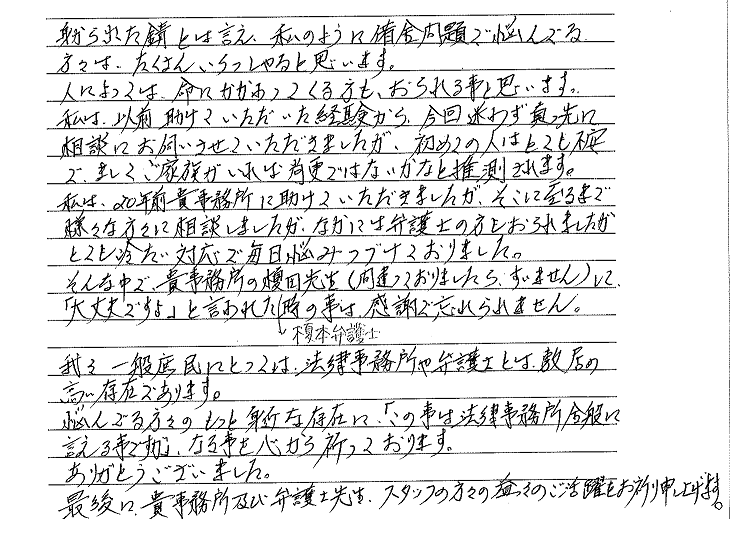 身から出た錆とは言え、私のように借金問題で悩んでる
方々は、たくさんいらっしゃると思います。
人によっては、命にかかわってくる方も、おられる事と思います。
私は、以前助けていただいた経験から、今回迷わず真っ先に
相談にお伺いさせていただきましたが、初めての人はとても不安
で、ましてご家族がいれば尚更ではないかなと推測されます。
私は、20年前貴事務所に助けていただきましたが、そこに至るまで
様々な方々に相談しましたが、なかには弁護士の方もおられましたが
とても冷たい対応で毎日悩みつづけておりました。
そんな中で、貴事務所の榎田先生(間違っておりましたら、すいません)に、
「大丈夫ですよ」と言われた時の事は、感謝で忘れられません。
榎本弁護士
我々一般庶民にとっては、法律事務所や弁護士とは、敷居の
高い存在であります。
悩んでる方々のもっと身近な存在に、「この事は法律事務所全般に
言える事ですが」、なる事を心から祈っております。
ありがとうございました。
最後に、貴事務所及び弁護士先生、スタッフの方々の益々のご活躍をお祈り申し上げます。